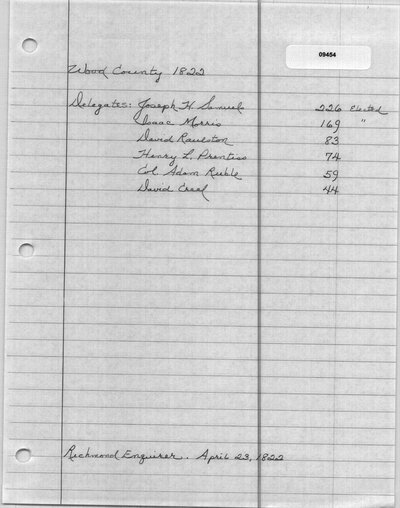 09454
Wood County 1822
Delegates: Joseph H. Samuels 226 Elected
Isaac Morris 169 "
David Raulston 83
Henry L. Prentiss 74
Col. Adam Ruble 59
David Creel 44
Richmond Enquirer. April 23, 1822